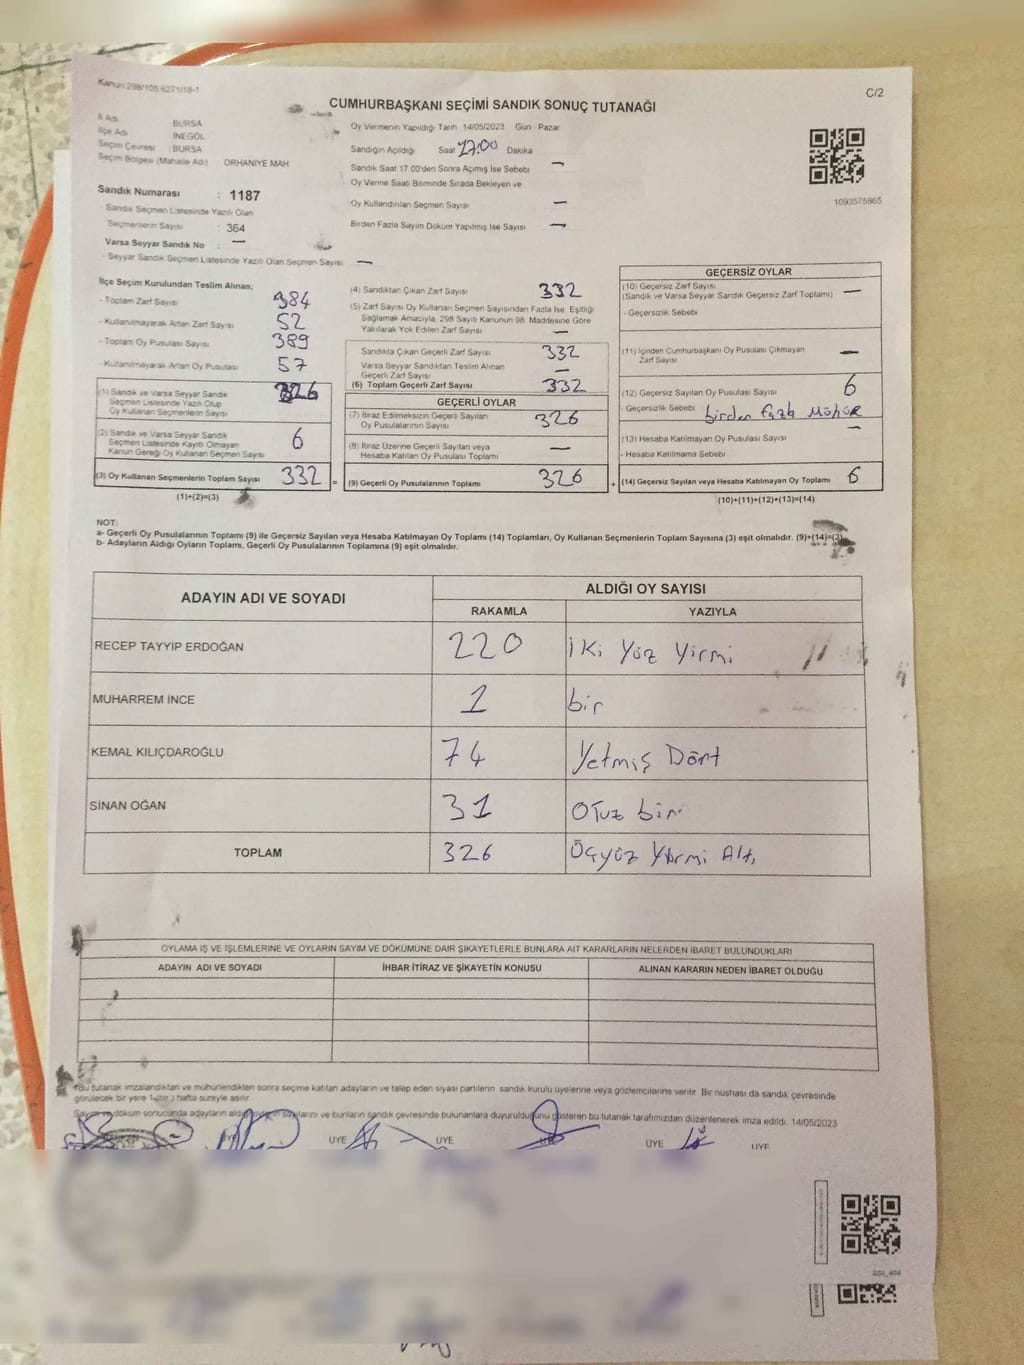 Kanun 298/105 6271/18-1
C/2
CUMHURBAŞKANI SEÇİMİ SANDIK SONUÇ TUTANAĞI
İl Adı : BURSA
İlçe Adı : İNEGÖL
Seçim Çevresi : BURSA
Seçim Bölgesi (Mahalle Adı) : ORHANİYE MAH
Sandık Numarası : 1187
- Sandık Seçmen Listesinde Yazılı Olan
Seçmenlerin Sayısı : 364
Varsa Seyyar Sandık No : —
- Seyyar Sandık Seçmen Listesinde Yazılı Olan Seçmen Sayısı: —
Oy Vermenin Yapıldığı Tarih 14/05/2023 Gün Pazar
Sandığın Açıldığı Saat 17:00 Dakika
Sandık Saat 17.00'den Sonra Açılmış İse Sebebi —
Oy Verme Saati Bitiminde Sırada Bekleyen ve
Oy Kullandırılan Seçmen Sayısı —
Birden Fazla Sayım Döküm Yapılmış İse Sayısı —
1093575865
İlçe Seçim Kurulundan Teslim Alınan;
- Toplam Zarf Sayısı 384
- Kullanılmayarak Artan Zarf Sayısı 52
- Toplam Oy Pusulası Sayısı 389
- Kullanılmayarak Artan Oy Pusulası 57
(1) Sandık ve Varsa Seyyar Sandık
Seçmen Listesinde Yazılı Olup
Oy Kullanan Seçmenlerin Sayısı 326
(2) Sandık ve Varsa Seyyar Sandık
Seçmen Listesinde Kayıtlı Olmayan
Kanun Gereği Oy Kullanan Seçmen Sayısı 6
(3) Oy Kullanan Seçmenlerin Toplam Sayısı 332 =
(1)+(2)=(3)
(4) Sandıktan Çıkan Zarf Sayısı 332
(5) Zarf Sayısı Oy Kullanan Seçmen Sayısından Fazla İse, Eşitliği
Sağlamak Amacıyla, 298 Sayılı Kanunun 98. Maddesine Göre
Yakılarak Yok Edilen Zarf Sayısı —
Sandıkta Çıkan Geçerli Zarf Sayısı 332
Varsa Seyyar Sandıktan Teslim Alınan
Geçerli Zarf Sayısı —
(6) Toplam Geçerli Zarf Sayısı 332
GEÇERLİ OYLAR
(7) İtiraz Edilmeksizin Geçerli Sayılan
Oy Pusulalarının Sayısı 326
(8) İtiraz Üzerine Geçerli Sayılan veya
Hesaba Katılan Oy Pusulası Toplamı —
(9) Geçerli Oy Pusulalarının Toplamı 326 +
GEÇERSİZ OYLAR
(10) Geçersiz Zarf Sayısı
(Sandık ve Varsa Seyyar Sandık Geçersiz Zarf Toplamı) —
- Geçersizlik Sebebi
(11) İçinden Cumhurbaşkanı Oy Pusulası Çıkmayan
Zarf Sayısı —
(12) Geçersiz Sayılan Oy Pusulası Sayısı 6
- Geçersizlik Sebebi birden fazla Mühür
(13) Hesaba Katılmayan Oy Pusulası Sayısı —
- Hesaba Katılmama Sebebi
(14) Geçersiz Sayılan veya Hesaba Katılmayan Oy Toplamı 6
(10)+(11)+(12)+(13)=(14)
NOT:
a- Geçerli Oy Pusulalarının Toplamı (9) ile Geçersiz Sayılan veya Hesaba Katılmayan Oy Toplamı (14) Toplamları, Oy Kullanan Seçmenlerin Toplam Sayısına (3) eşit olmalıdır. (9)+(14)=(3)
b- Adayların Aldığı Oyların Toplamı, Geçerli Oy Pusulalarının Toplamına (9) eşit olmalıdır.
ADAYIN ADI VE SOYADI ALDIĞI OY SAYISI
RAKAMLA YAZIYLA
RECEP TAYYİP ERDOĞAN 220 İki Yüz Yirmi
MUHARREM İNCE 1 bir
KEMAL KILIÇDAROĞLU 74 Yetmiş Dört
SİNAN OĞAN 31 Otuz bir
TOPLAM 326 Üçyüz Yirmi Altı
OYLAMA İŞ VE İŞLEMLERİNE VE OYLARIN SAYIM VE DÖKÜMÜNE DAİR ŞİKAYETLERLE BUNLARA AİT KARARLARIN NELERDEN İBARET BULUNDUKLARI
ADAYIN ADI VE SOYADI İHBAR İTİRAZ VE ŞİKAYETİN KONUSU ALINAN KARARIN NEDEN İBARET OLDUĞU
*Bu tutanak imzalandıktan ve mühürlendikten sonra seçime katılan adayların ve talep eden siyasi partilerin sandık kurulu üyelerine veya gözlemcilerine verilir. Bir nushası da sandık çevresinde
görülecek bir yere 1(bir) hafta süreyle asılır.
Sayım ve döküm sonucunda adayların aldığı oyların sayılarını ve bunların sandık çevresinde bulunanlara duyurulduğunu gösteren bu tutanak tarafımızdan düzenlenerek imza edildi. 14/05/2023
ÜYE ÜYE ÜYE ÜYE